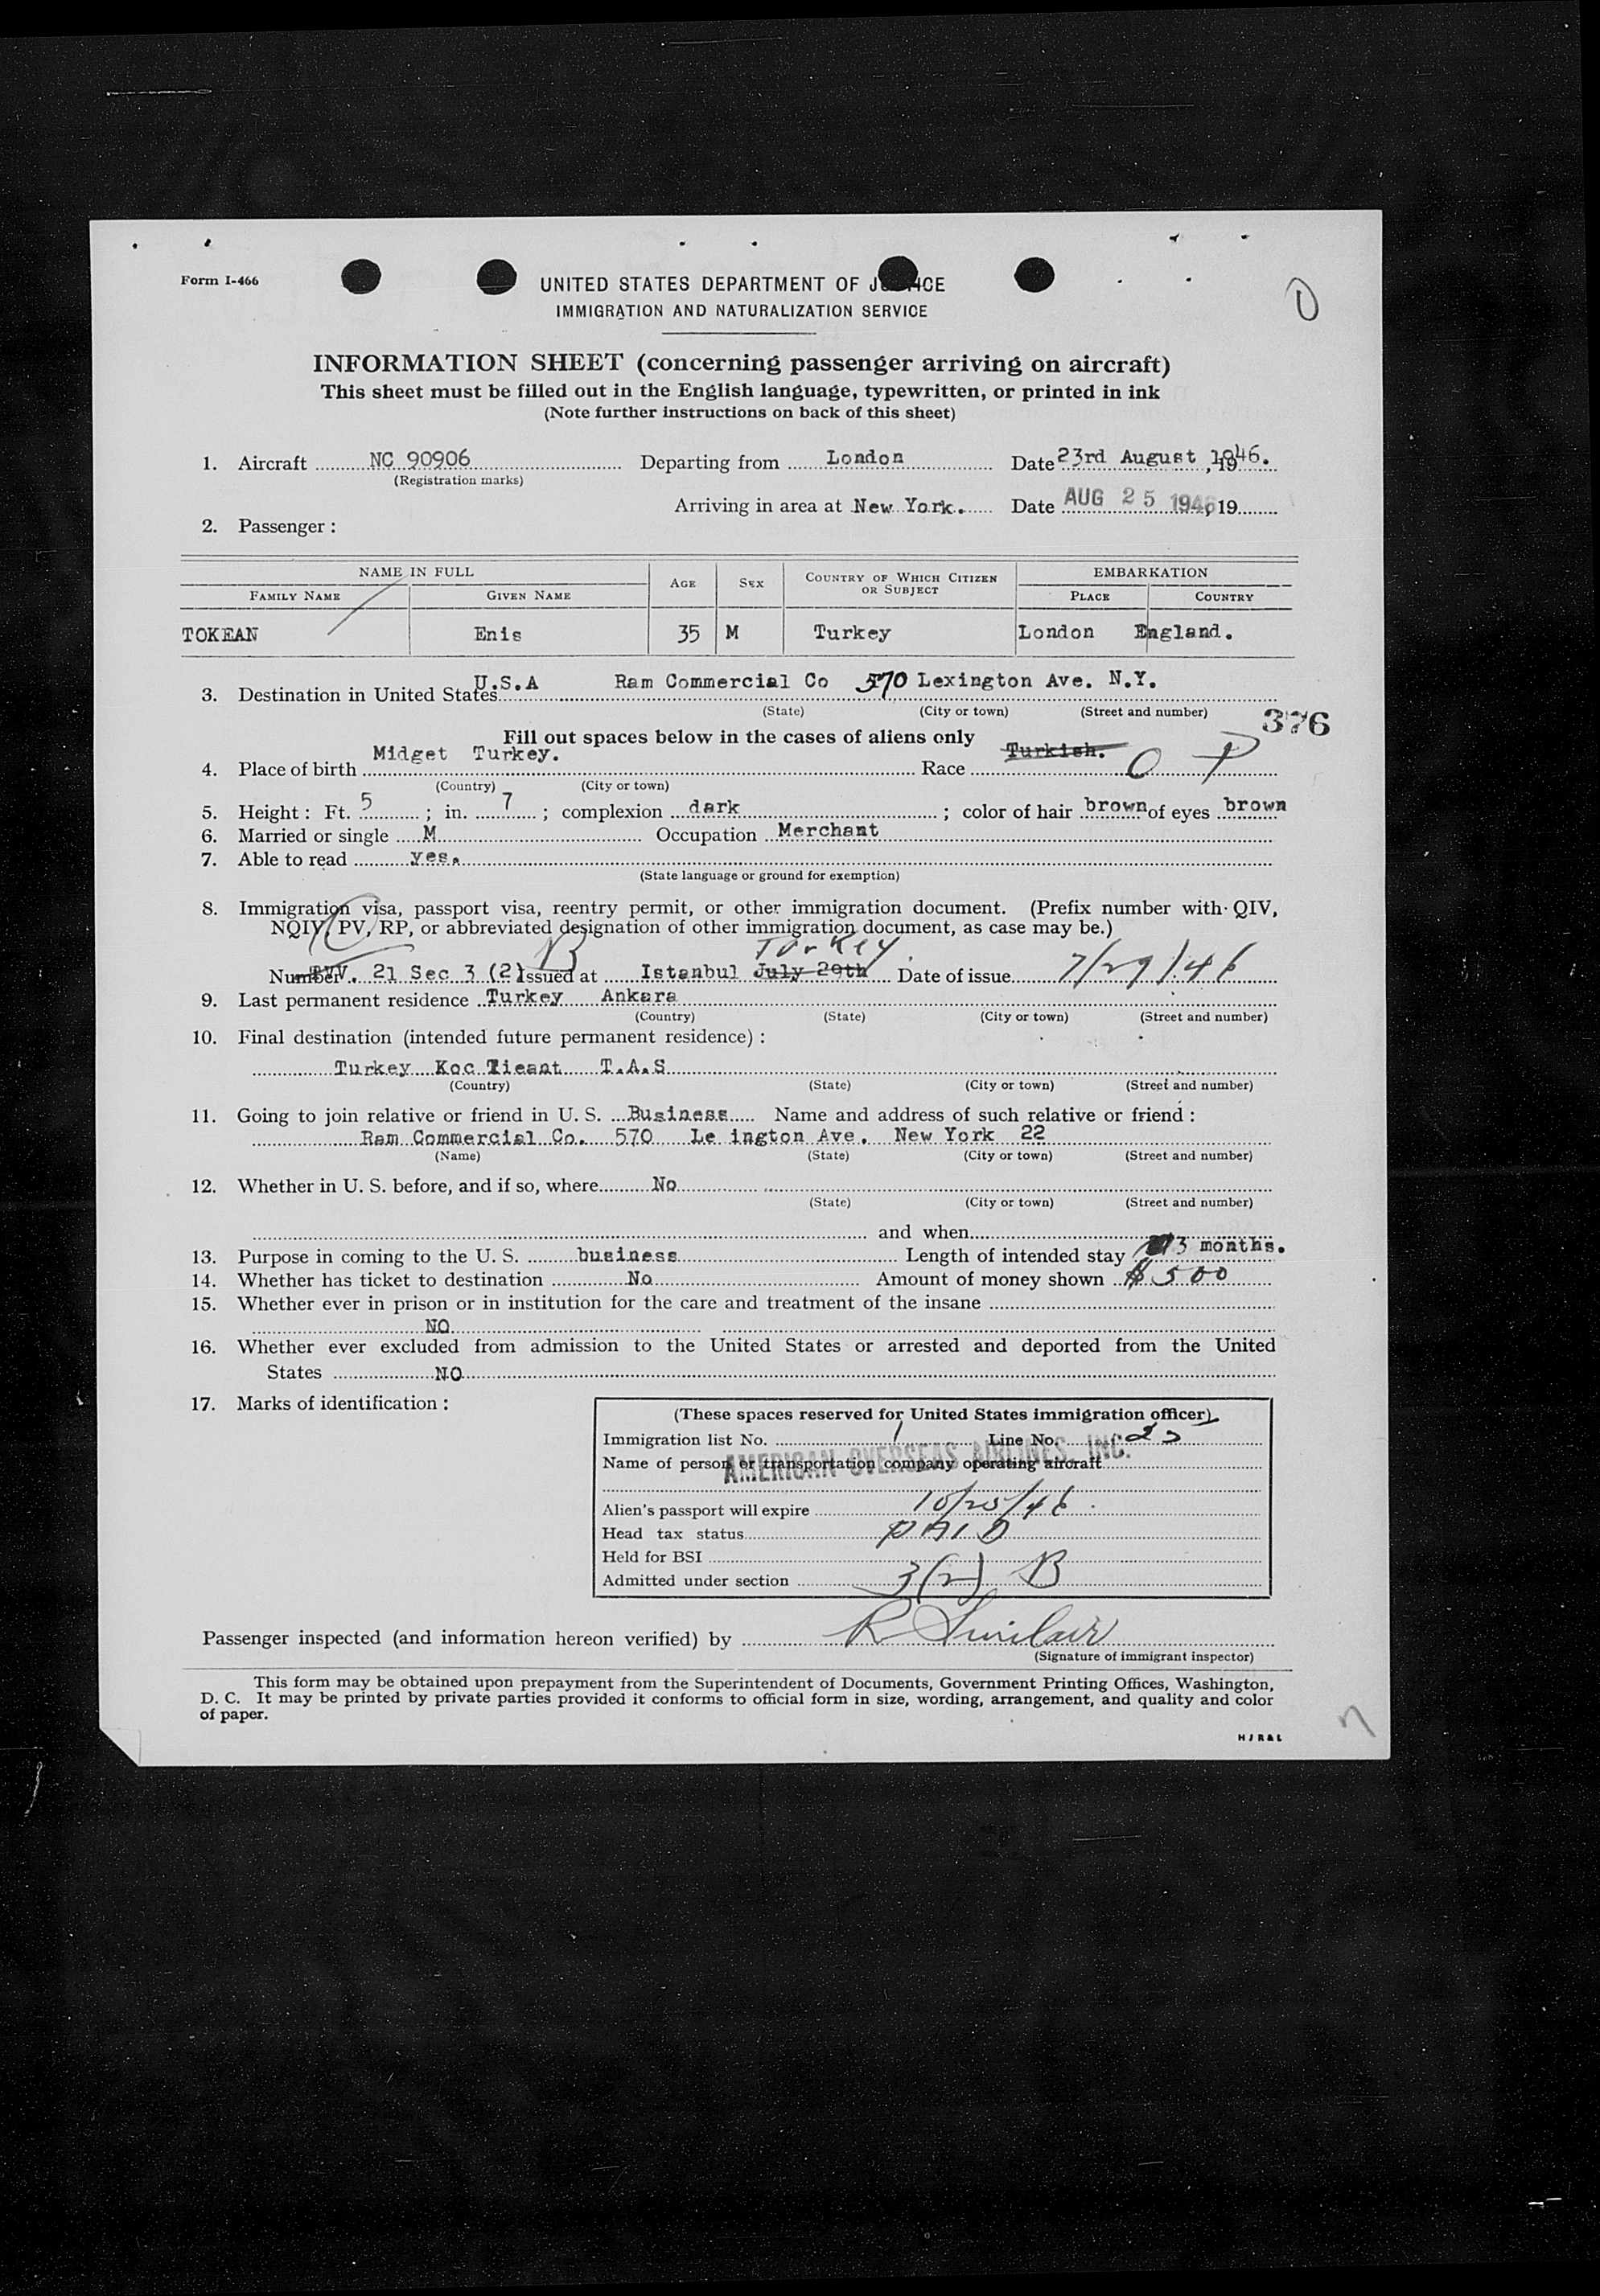 Form I-466
UNITED STATES DEPARTMENT OF JUSTICE
IMMIGRATION AND NATURALIZATION SERVICE
INFORMATION SHEET (concerning passenger arriving on aircraft)
This sheet must be filled out in the English language, typewritten, or printed in ink
(Note further instructions on back of this sheet)
1. Aircraft NC 90906 Departing from London Date 23rd August 1946.
(Registration marks)
Arriving in area at New York. Date AUG 25 1946, 19
2. Passenger:
NAME IN FULL AGE SEX COUNTRY OF WHICH CITIZEN OR SUBJECT EMBARKATION
FAMILY NAME GIVEN NAME PLACE COUNTRY
TOKEAN Enis 35 M Turkey London England.
3. Destination in United States U.S.A Ram Commercial Co 570 Lexington Ave. N.Y.
(State) (City or town) (Street and number)
376
Fill out spaces below in the cases of aliens only
4. Place of birth Midget Turkey. Race Turkish.
(Country) (City or town)
5. Height: Ft. 5; in. 7; complexion dark; color of hair brown of eyes brown
6. Married or single M Occupation Merchant
7. Able to read yes.
(State language or ground for exemption)
8. Immigration visa, passport visa, reentry permit, or other immigration document. (Prefix number with QIV,
NQIV, PV, RP, or abbreviated designation of other immigration document, as case may be.)
Turkey
Number 21 Sec 3 (2) B Issued at Istanbul July 29th Date of issue 7/29/46
9. Last permanent residence Turkey Ankara
(Country) (State) (City or town) (Street and number)
10. Final destination (intended future permanent residence):
Turkey Koc Ticant T.A.S
(Country) (State) (City or town) (Street and number)
11. Going to join relative or friend in U. S. Business Name and address of such relative or friend:
Ram Commercial Co. 570 Le ington Ave. New York 22
(Name) (State) (City or town) (Street and number)
12. Whether in U. S. before, and if so, where No
(State) (City or town) (Street and number)
and when
13. Purpose in coming to the U. S. business Length of intended stay 3 months.
14. Whether has ticket to destination No Amount of money shown $500
15. Whether ever in prison or in institution for the care and treatment of the insane
NO
16. Whether ever excluded from admission to the United States or arrested and deported from the United
States NO
17. Marks of identification:
(These spaces reserved for United States immigration officer)
Immigration list No. 1 Line No. 25
Name of person or transportation company operating aircraft
AMERICAN OVERSEAS AIRLINES, INC.
Alien's passport will expire 10/25/46.
Head tax status PAID
Held for BSI
Admitted under section 3(2) B
Passenger inspected (and information hereon verified) by R Sinclair
(Signature of immigrant inspector)
This form may be obtained upon prepayment from the Superintendent of Documents, Government Printing Offices, Washington,
D. C. It may be printed by private parties provided it conforms to official form in size, wording, arrangement, and quality and color
of paper.
HJR&L